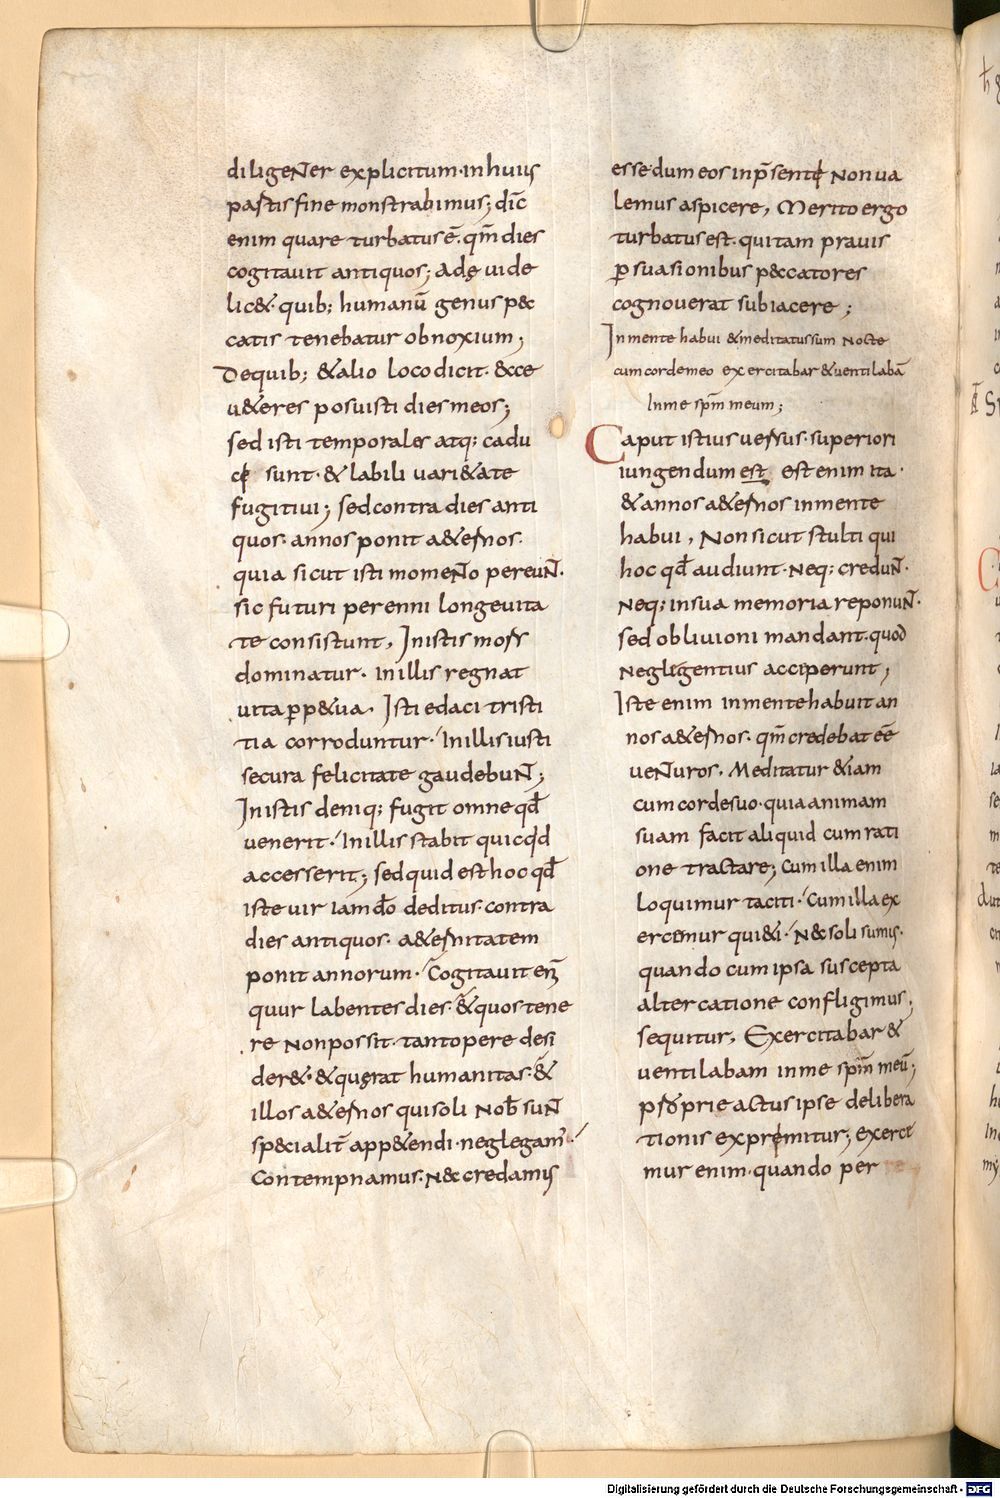 diligenter explicitum· inhuius
partis fine monstrabimus; dic̄
enim quare turbatus ē· qm̄ dies
cogitauit antiquos; Adę uide
lic&· quib; humanū genus pec
catis tenebatur obnoxium;
Dequib; & alio loco dicit· ecce
u&eres posuisti dies meos;
sed isti temporales atq; cadu
cę sunt· & labili uari&ate
fugitiui; sed contra dies anti
quos· annos ponit a&ernos·
quia sicut isti momento pereunt·
sic futuri perenni longeuita
te consistunt, Inistis mors
dominatur· Inillis regnat
uita ꝑp&ua· Isti edaci tristi
tia corroduntur· Inillis iusti
secura felicitate gaudebunt;
Inistis deniq; fugit omne qđ
uenerit· Inillis stabit quicqđ
accesserit; sed quid est hoc qđ
iste uir iam dō deditus· contra
dies antiquos· a&ernitatem
ponit annorum· Cogitauit enī
quur labentes dies· & quos tene
re non possit· tantopere desi
der&· & quęrat humanitas· &
illos a&ernos qui soli nob̄ sunt
specialit̄ app&endi· neglegam̄·
Contempnamus· nec credamus
esse· dum eos inp̄sentę non ua
lemus aspicere, Merito ergo
turbatus est· qui tam prauis
ꝑsuasionibus peccatores
cognouerat subiacere;
In mente habui & meditatus sum nocte
cum corde meo exercitabar & uentilabā
Inme spm̄ meum;
Caput istius uersus· superiori
iungendum est est enim ita·
& annos a&ernos inmente
habui, Non sicut stulti qui
hoc qđ audiunt· neq; credunt·
neq; insua memoria reponunt·
sed obliuioni mandant· quod
neglegentius acceperunt;
Iste enim inmente habuit an
nos a&ernos· qm̄ credebat eē
uenturos· Meditatur &iam
cum corde suo· quia animam
suam facit aliquid cum rati
one tractare; Cum illa enim
loquimur taciti· Cum illa ex
ercemur qui&i· Nec soli sumus·
quando cum ipsa suscepta
altercatione confligimus,
sequitur, Exercitabar &
uentilabam inme spm̄ meū;
proprie actus ipse delibera
tionis exprimitur; exerce
mur enim· quando per
Digitalisierung gefördert durch die Deutsche Forschungsgemeinschaft - DFG